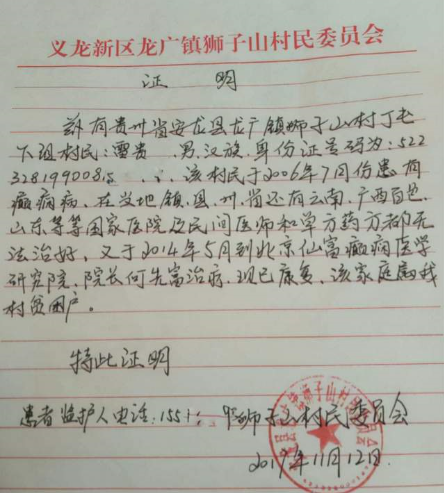 义龙新区龙广镇狮子山村民委员会
证 明
兹有贵州省安龙县龙广镇狮子山村丁屯
下组村民:雷贵 男,汉族,身份证号码为:522
328199008 该村民于2006年7月份患有
癫痫病,在当地镇、县、州、省还有云南、广西百色、
山东等等国家医院及民间医师和单方药方都无
法治好,又于2014年5月到北京仙富癫痫医学
研究院,院长何先富治疗,现已康复,该家庭属我
村贫困户。
特此证明
患者监护人电话:155 狮子山村民委员会
2017年11月12日